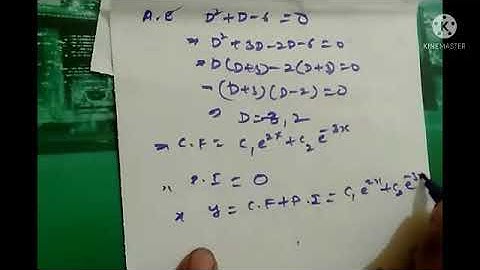 A.E D²+D-6=0
⇒ D²+3D-2D-6=0
⇒ D(D+3)-2(D+3)=0
⇒ (D+3)(D-2)=0
⇒ D=-3, 2
⇒ C.F = C₁e²ˣ+C₂e⁻³ˣ
,, P.I = 0
⇒ y = C.F+P.I = C₁e²ˣ+C₂e⁻³
KINEMASTER